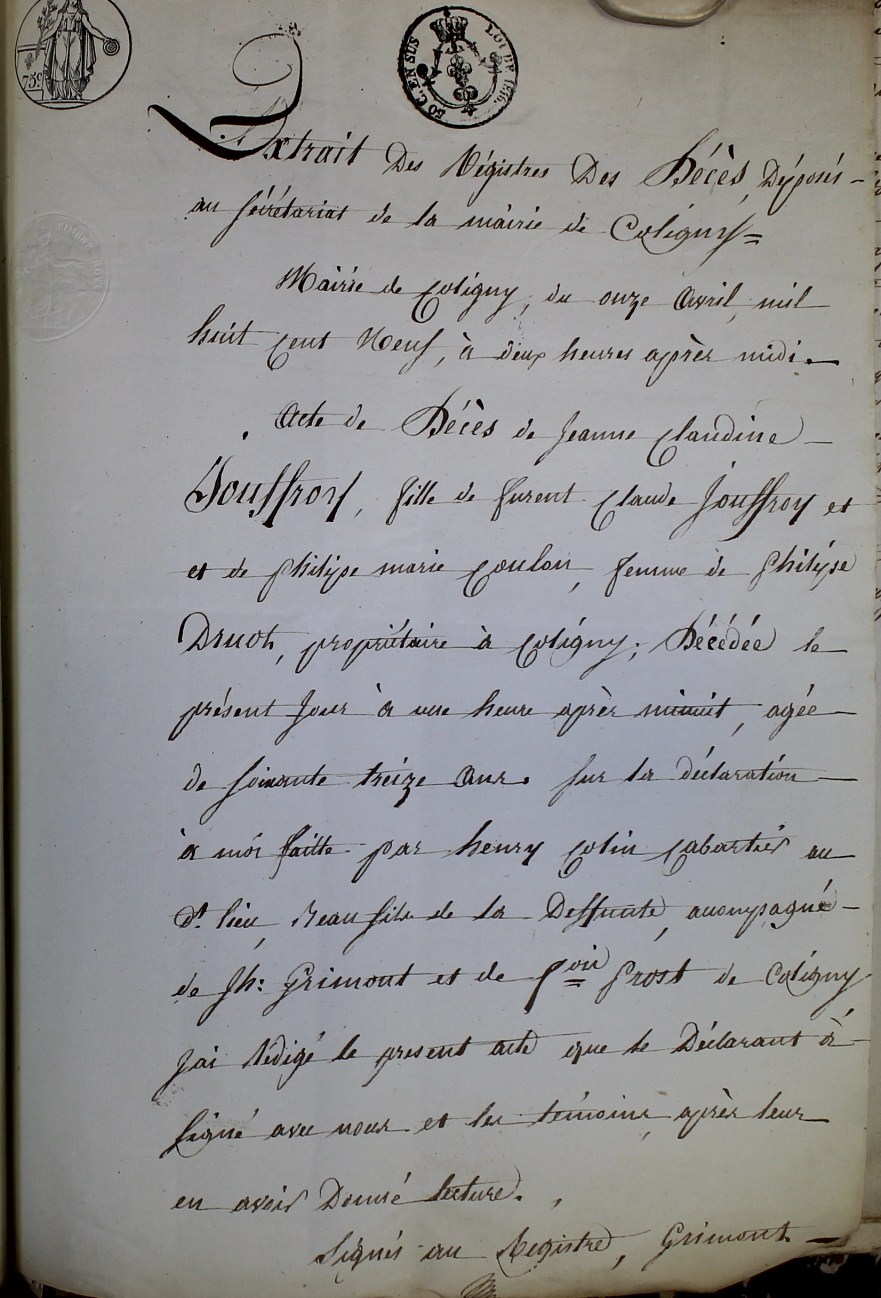 75c
50 C. EN SUS
LOI DE 1816.
Extrait Des Régistres Des Décès, Déposés-
au sécrétariat de la mairie de Coligny=
Mairie de Coligny, du onze avril, mil
huit cent Neuf, à deux heures après midi.
Acte de Décès de Jeanne Claudine
Jouffroy, fille de furent Claude Jouffroy et
et de philipe marie Coulon, femme de philipe
Druot, propriétaire à Coligny; Décédée le
présent Jour à une heure après minuit, agée
de soixante treize ans. sur la déclaration
à moi faitte par henry Colin Cabartier au
dt. lieu, Beau fils de la Deffunte, accompagné-
de Jh: Grimont et de fois prost de Coligny
J'ai rédigé le present acte que le Déclarant à
signé avec nous et les témoins, après leur
en avoir Donné lecture.
Signés au Registre, Grimont